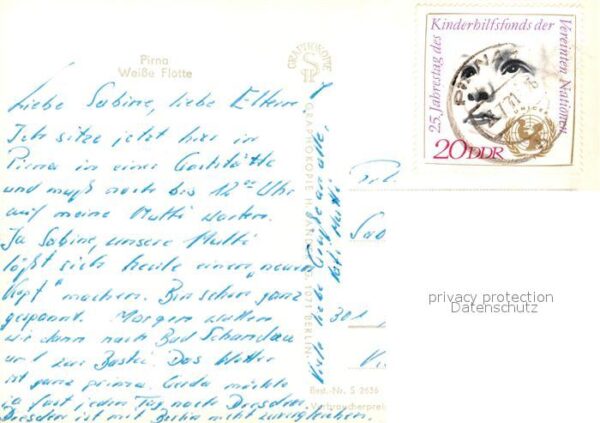 Pirna
Weiße Flotte
Liebe Sabine, liebe Eltern!
Ich sitze jetzt hier in
Pirna in einer Gaststätte
und muß noch bis 12⁰⁰ Uhr
auf meine Mutti warten.
Ja Sabine, unsere Mutti
läßt sich heute einen „neuen
Kopf" machen. Bin schon ganz
gespannt. Morgen wollen
wir dann nach Bad Schandau
und zur Bastei. Das Wetter
ist ganz prima. Gerda möchte
ja fast jeden Tag nach Dresden.
Dresden ist mit Berlin nicht zu vergleichen.
Viele liebe Grüße an alle,
Mutti
GRAPHOKOPIE
GRAPHOKOPIE H. SANDER KG, 1071 BERLIN
Best.-Nr. S 2636
Verbraucherpreis
25. Jahrestag des Kinderhilfsfonds der Vereinten Nationen
UNICEF
20 DDR
PIRNA
301
privacy protection
Datenschutz